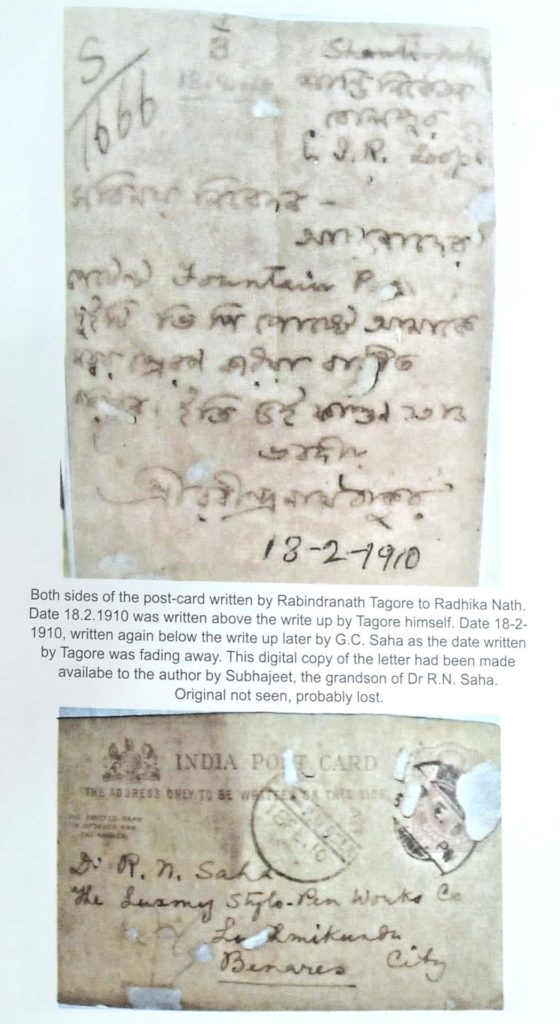 S/1666
3
18.2.10
শান্তি নিকেতন
বোলপুর
E. I. R. Loop.
সবিনয় নিবেদন -
আপনাদের
Fountain Pen
দুইটি ভি পি পোষ্টে আমাকে
প্রেরণ করিয়া বাধিত
করিবেন। ইতি ৬ই ফাল্গুন ১৩১৬
ভবদীয়
শ্রীরবীন্দ্রনাথ ঠাকুর
18-2-1910
Both sides of the post-card written by Rabindranath Tagore to Radhika Nath.
Date 18.2.1910 was written above the write up by Tagore himself. Date 18-2-
1910, written again below the write up later by G.C. Saha as the date written
by Tagore was fading away. This digital copy of the letter had been made
availabe to the author by Subhajeet, the grandson of Dr R.N. Saha.
Original not seen, probably lost.
INDIA POST CARD
THE ADDRESS ONLY TO BE WRITTEN ON THIS SIDE
Dr R. N. Saha
The Luxmy Stylo-Pen Works Co
Benares City